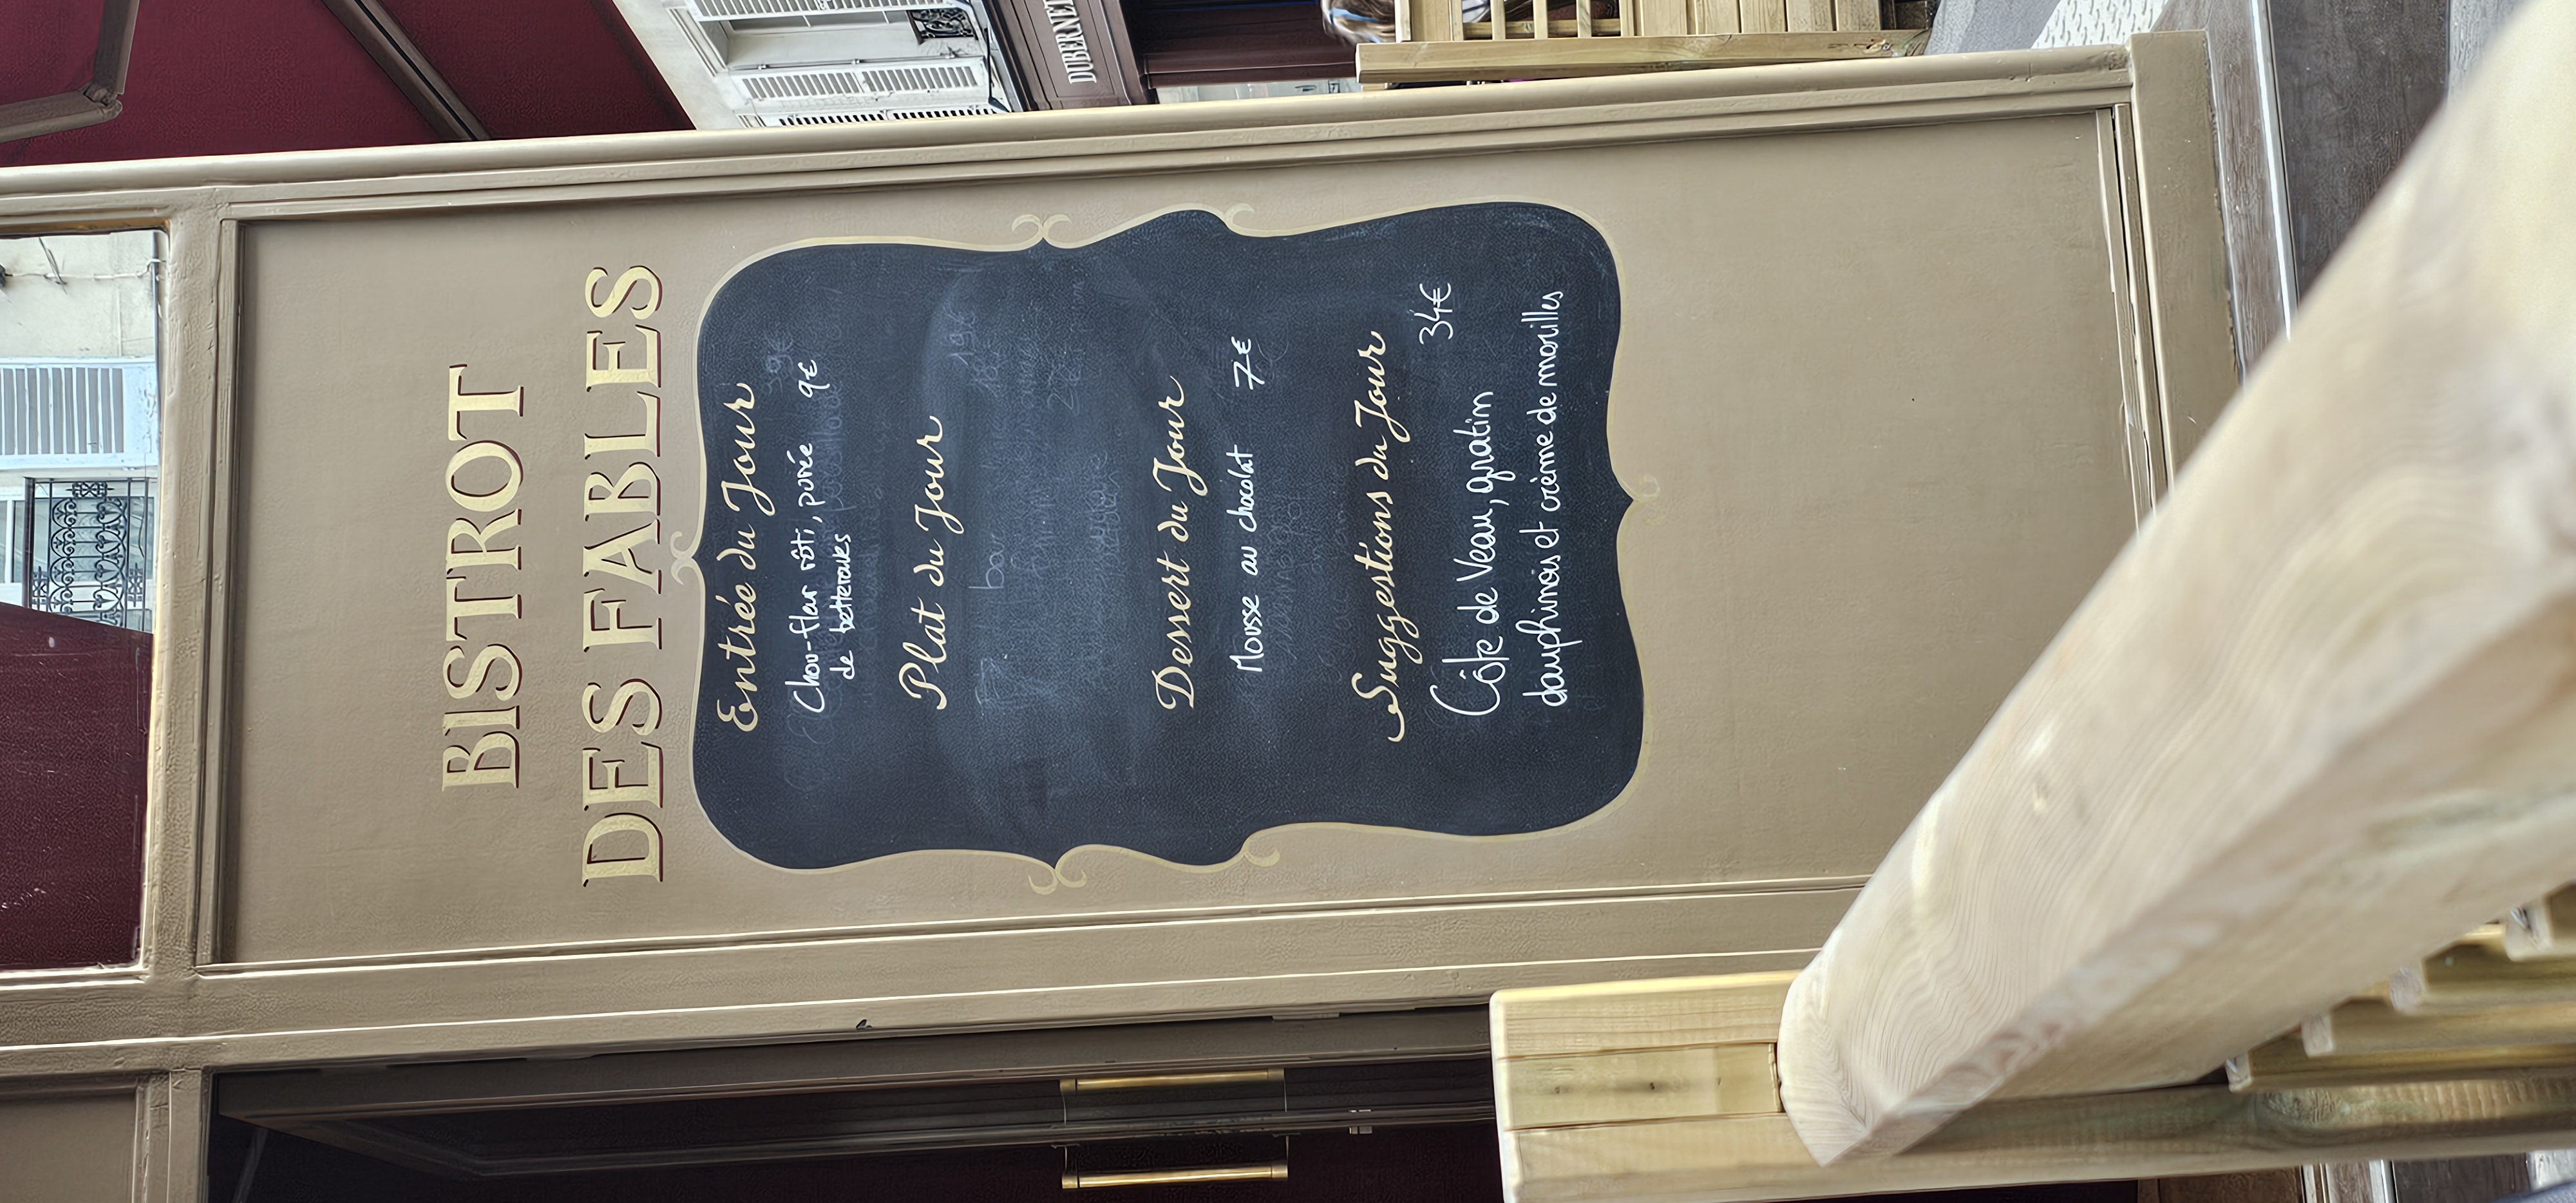 BISTROT
DES FABLES
Entrée du Jour
Chou-fleur rôti, purée 9€
de betteraves
Plat du Jour
Dessert du Jour
Mousse au chocolat 7€
Suggestions du Jour
34€
Côte de Veau, gratin
dauphinois et crème de morilles